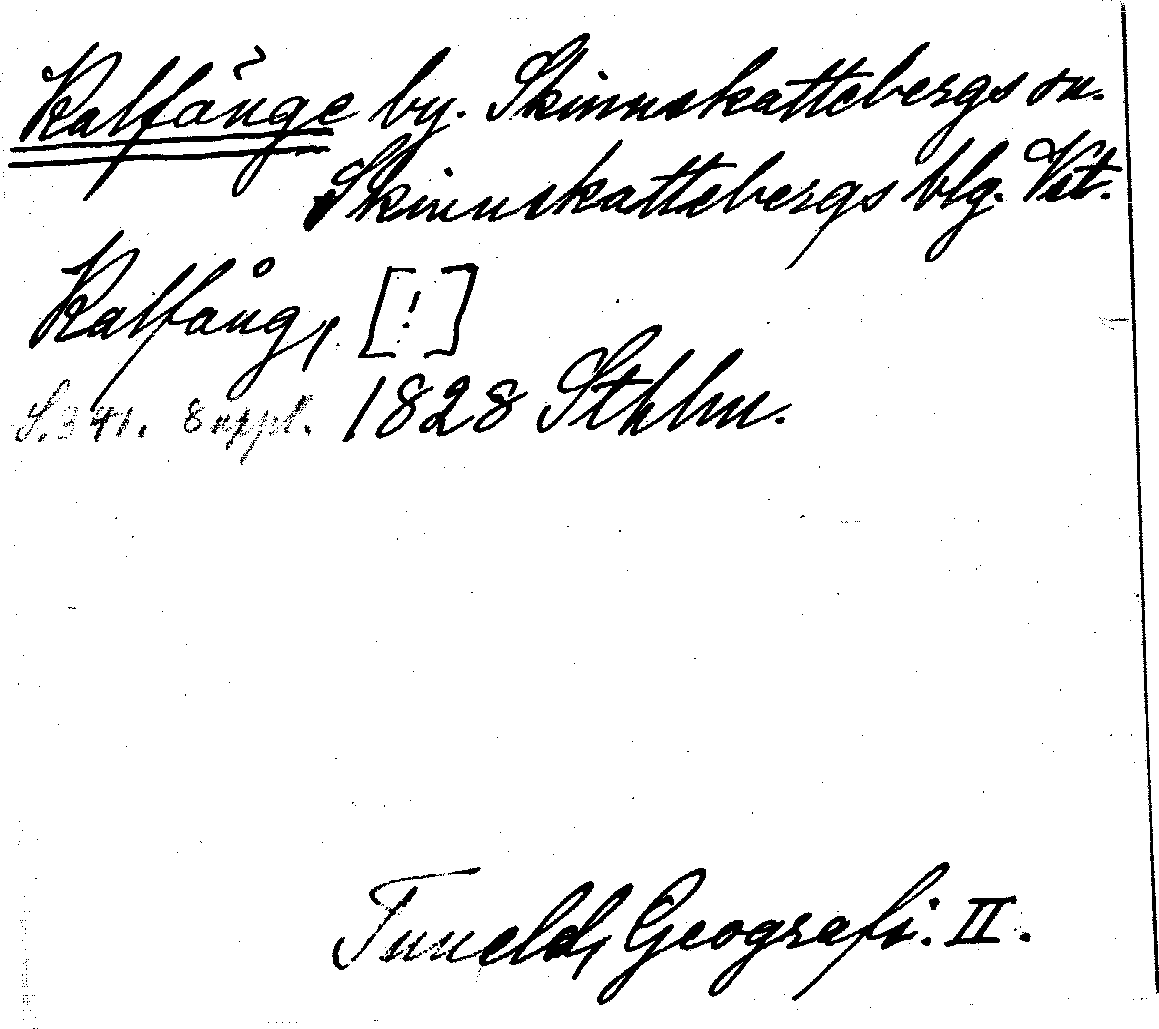 Kalfänge by. Skinnskattebergs sn.
Skinnskattebergs blg. Vst.
Kalfång, [!]
S. 341. Suppl. 1828 Sthlm.
Tuneld, Geografi. II.